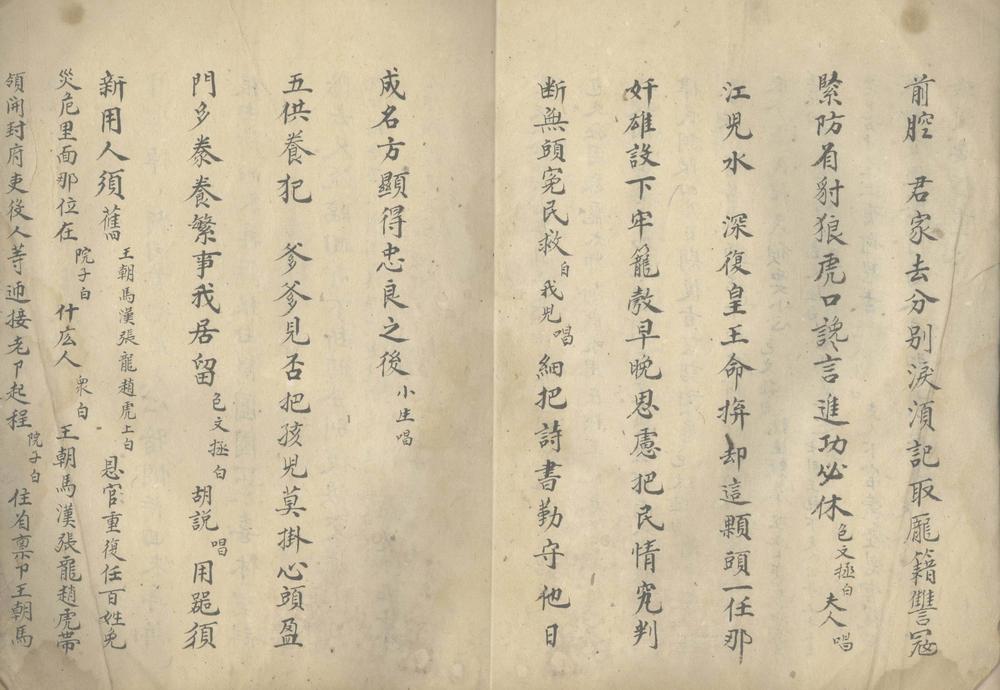 前腔　君家去分別淚湏記取龐籍讐寇
緊防有豺狼虎口讒言進功必休包文拯白夫人唱
江児水　深復皇王命捹却這顆頭一任那
奸雄設下牢籠敖早晚思慮把民情究判
断無頭冤民救白我児唱細把詩書勤守他日
成名方顯得忠良之後小生唱
五供養犯　爹爹見否把孩児莫掛心頭盈
門多泰養繁事我居留包文拯白胡説唱用噐須
新用人須舊王朝馬漢張龍趙虎上白恳官重復任百姓免
災危里面那位在院子白什庅人衆白王朝馬漢張龍趙虎帯
領開封府吏後人等迎接老卩起程院子白住有禀卩王朝馬